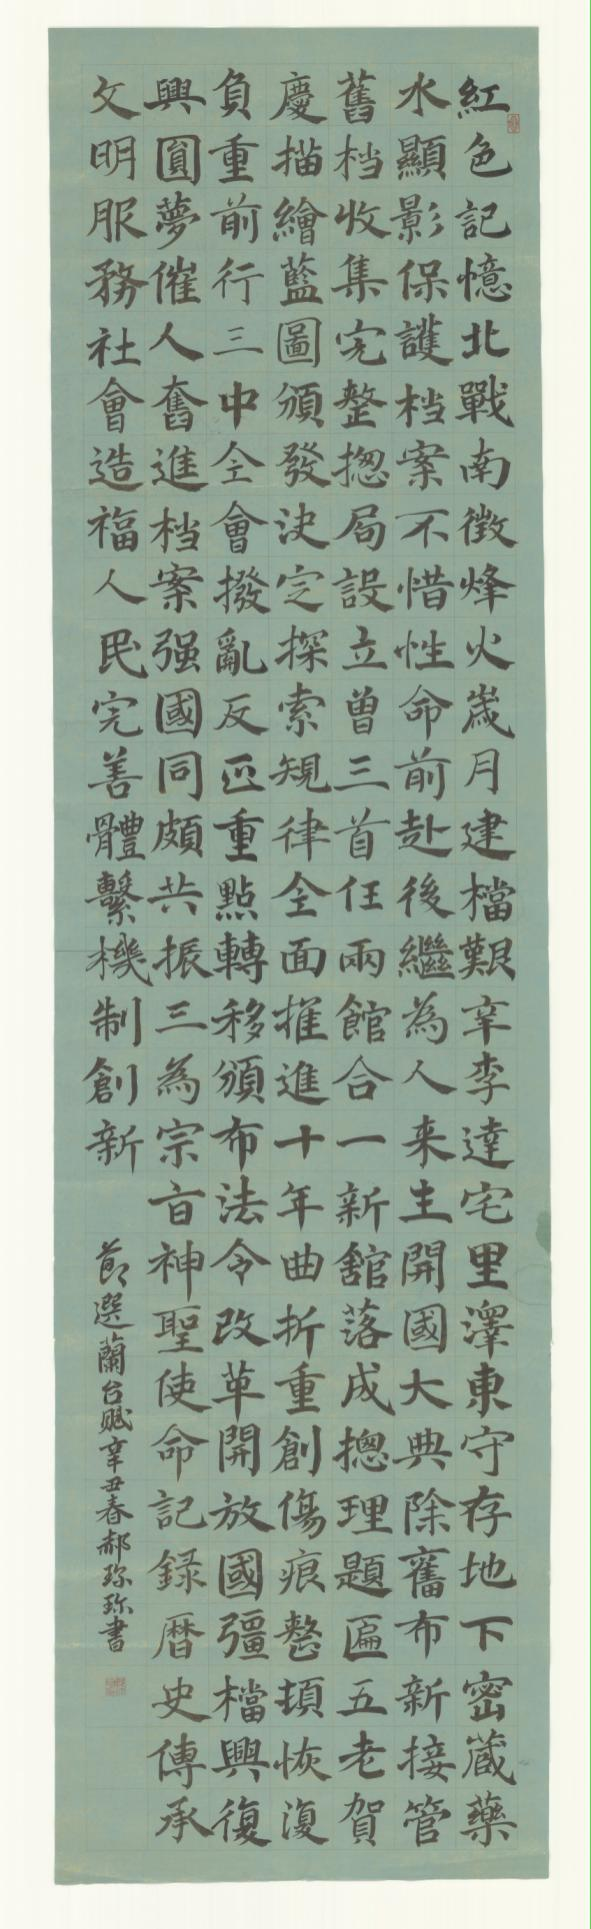 紅色記憶北戰南徵烽火歲月建檔艱辛李達宅里澤東守存地下密藏藥
水顯影保護档案不惜性命前赴後繼為人来主開國大典除舊布新接管
舊档收集完整揔局設立曾三首任兩館合一新舘落成摠理題匾五老賀
慶描繪藍圖頒發決定探索規律全面推進十年曲折重創傷痕整頓恢復
負重前行三中全會撥亂反正重點轉移頒布法令改革開放國彊檔興復
興圓夢催人奮進档案强國同頻共振三為宗旨神聖使命記録曆史傳承
文明服務社會造福人民完善體繫機制創新
節選蘭台賦辛丑春郝珎珎書